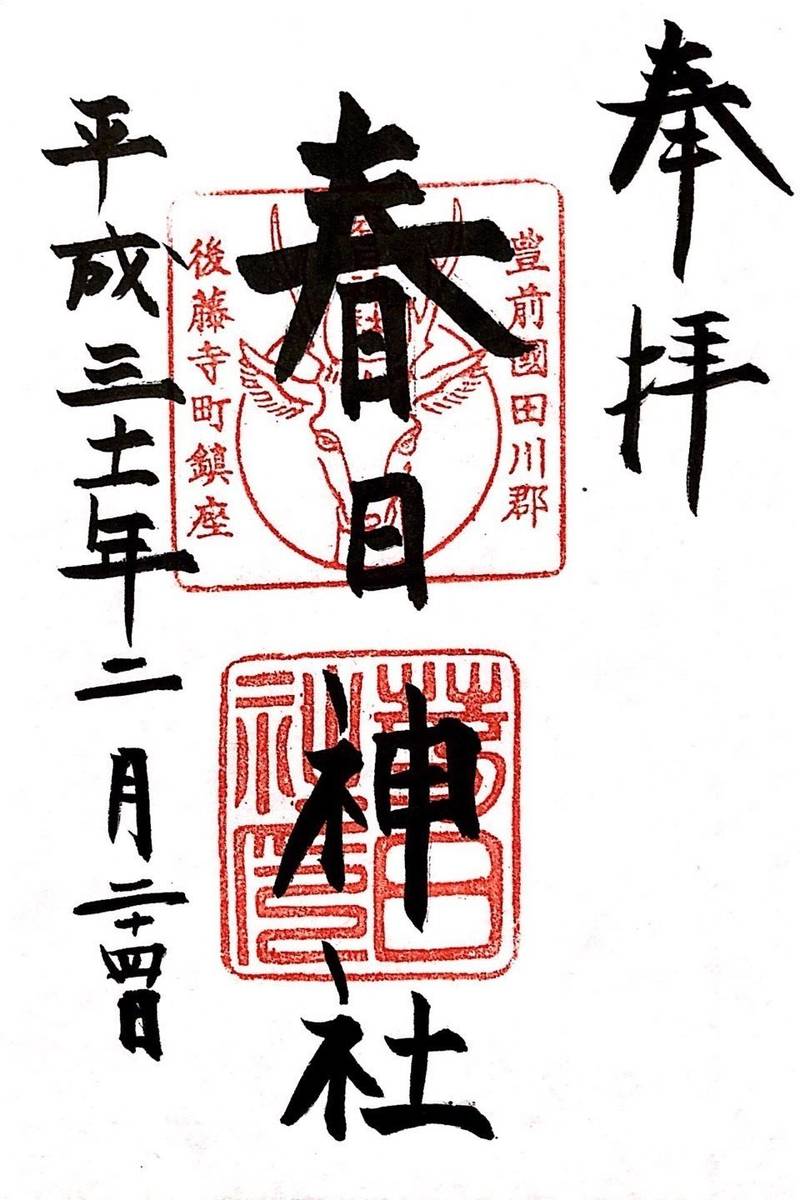 奉拝
豊前國田川郡
春日神社
後藤寺町鎮座
春日社印
平成三十一年二月二十四日